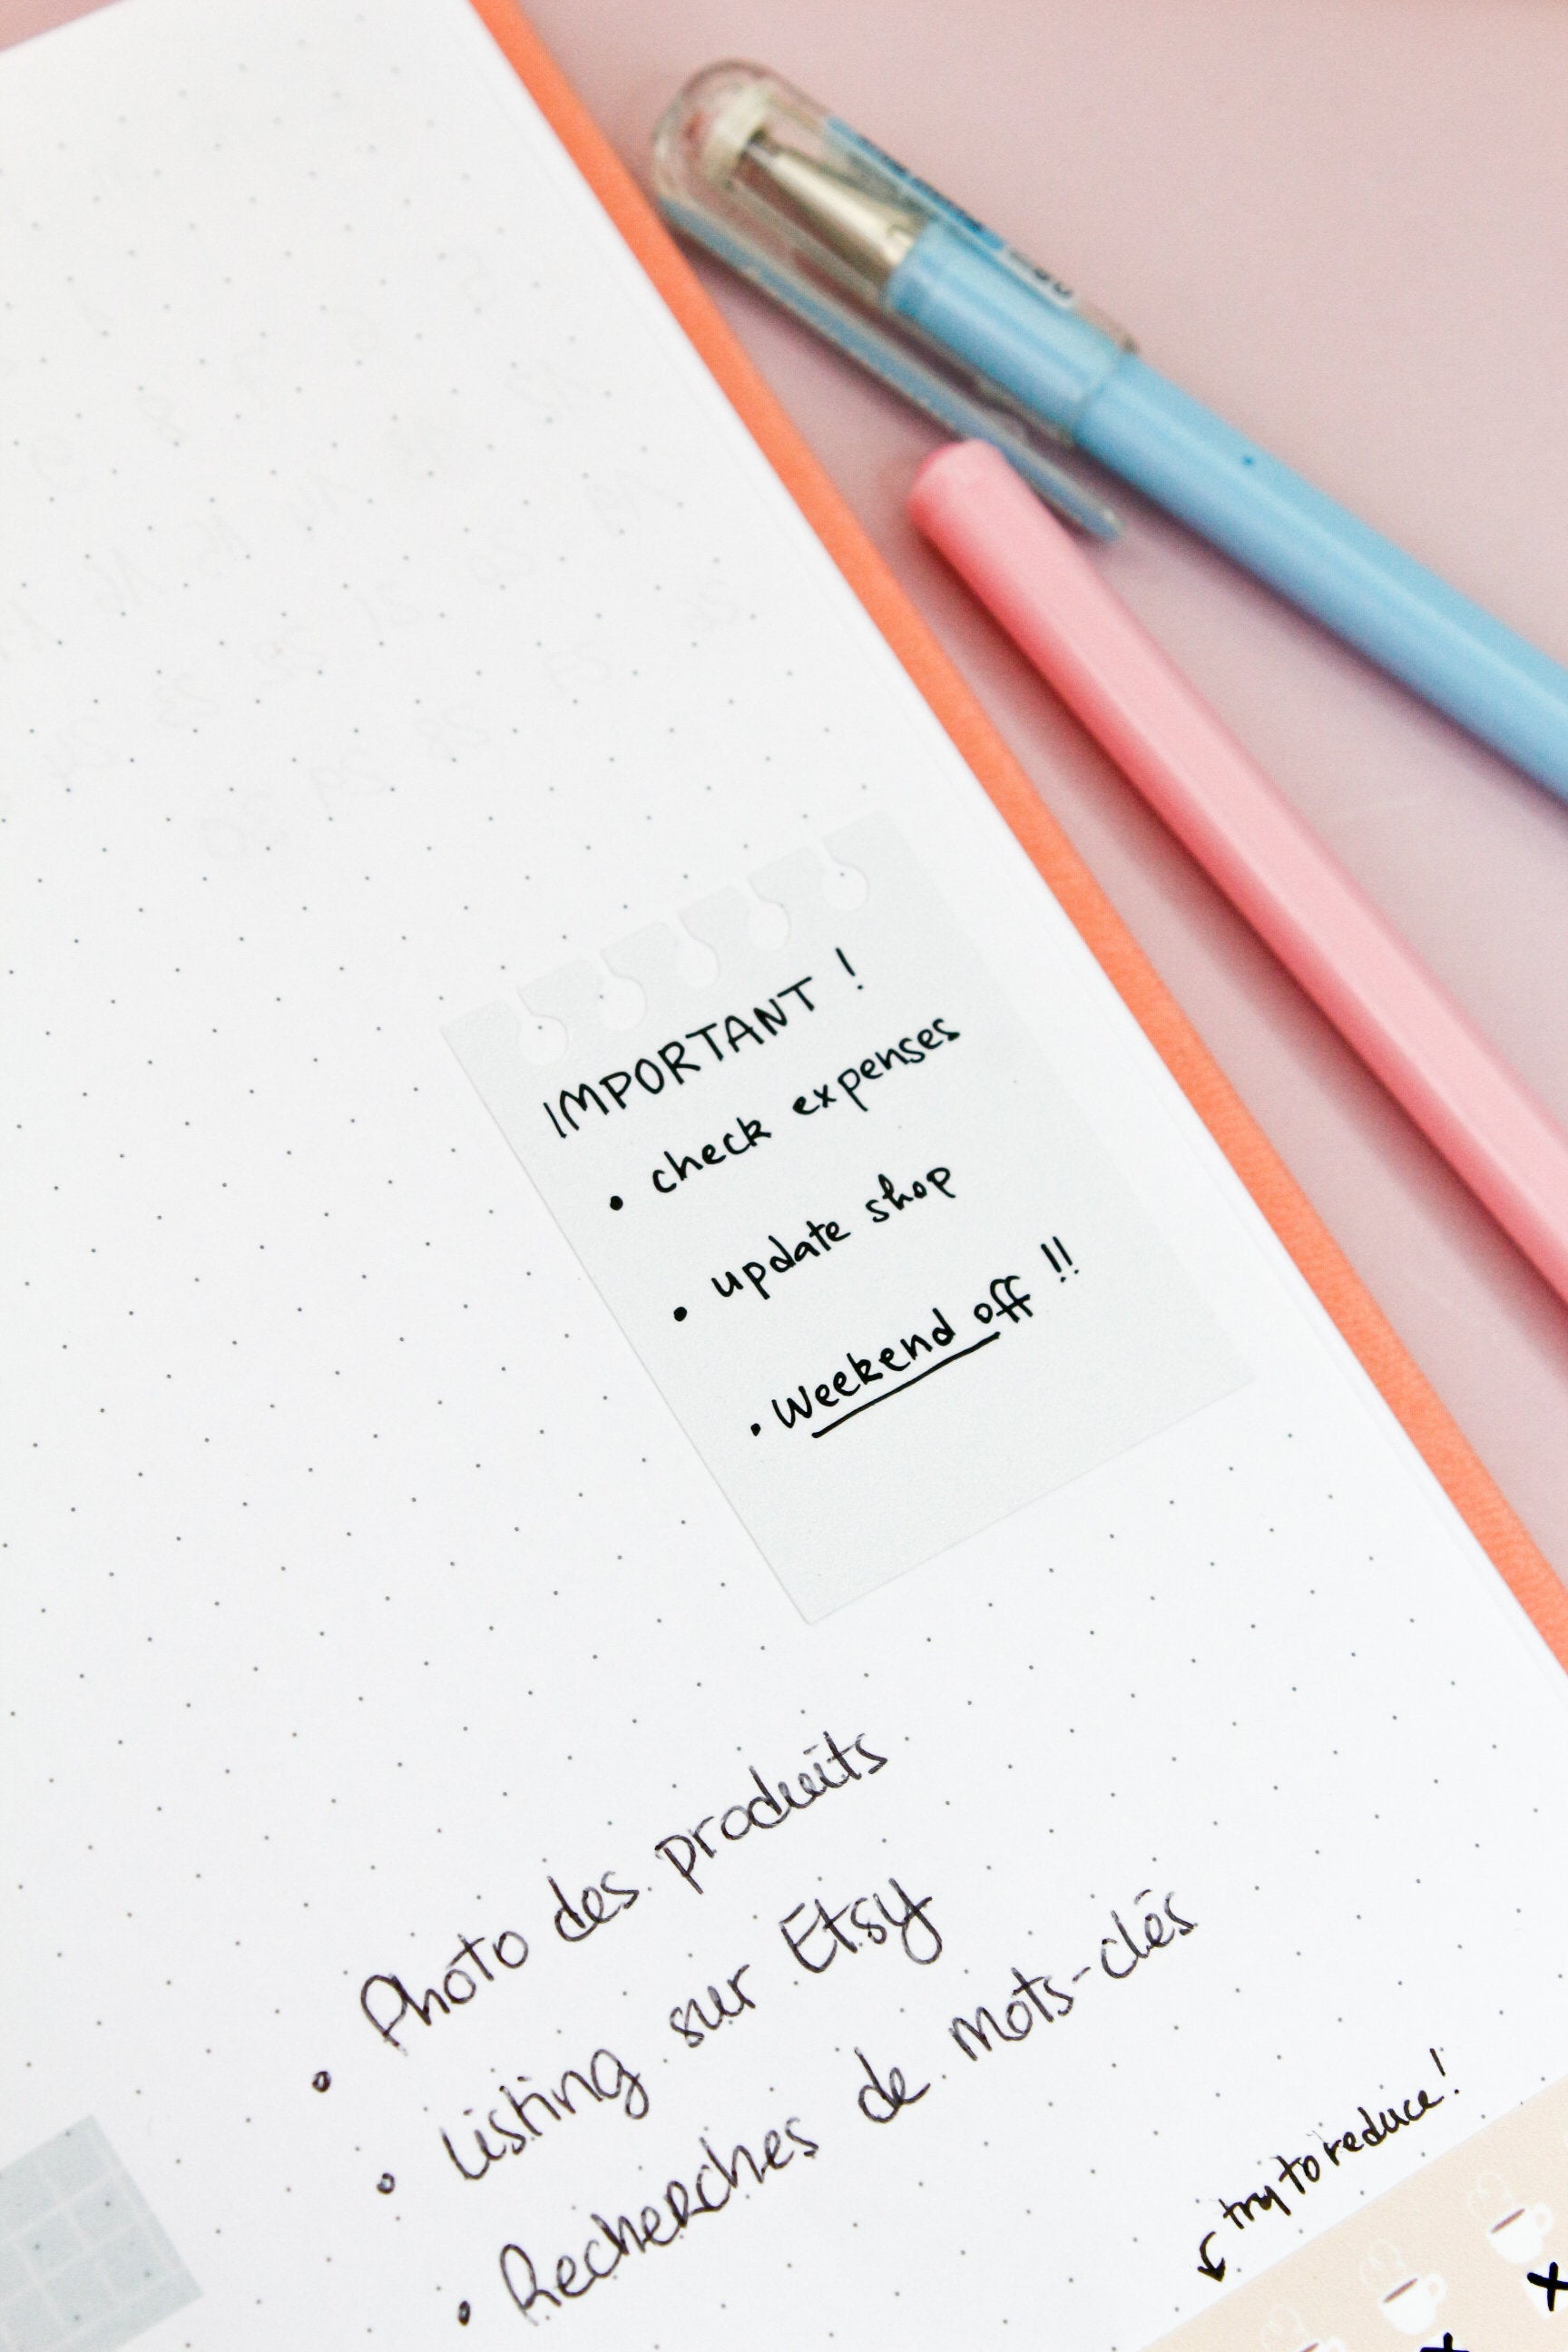 IMPORTANT !
• check expenses
• update shop
• Weekend off !!
• Photo des produits
• Listing sur Etsy
• Recherches de mots-clés
try to reduce!
x